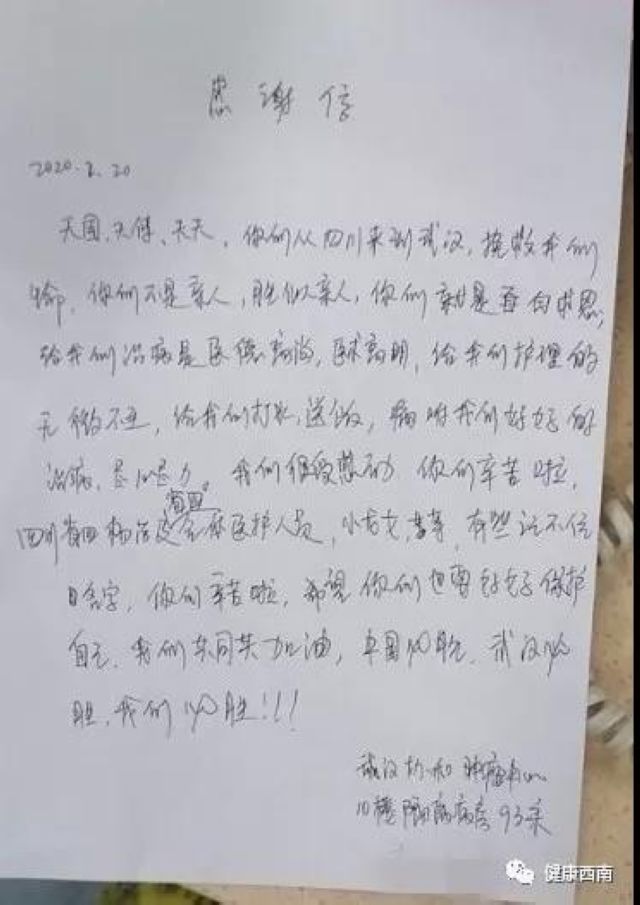 感谢信
2020.2.20
天团、天使、天天,你们从四川来到武汉,挽救我们
生命,你们不是亲人,胜似亲人,你们就是香白求恩,
给我们治病是医德高尚,医术高明,给我们护理的
无微不至,给我们打水,送饭,嘱咐我们好好的
治病,尽心尽力。我们很受感动 你们辛苦啦,
四川省四 医护人员,小 有些记不住
名字,你们辛苦啦,希望你们也要好好保护
自己,我们共同 加油,中国必胜,武汉必
胜,我们必胜!!!
武汉协和肿瘤
10楼隔离病房93床
健康西南